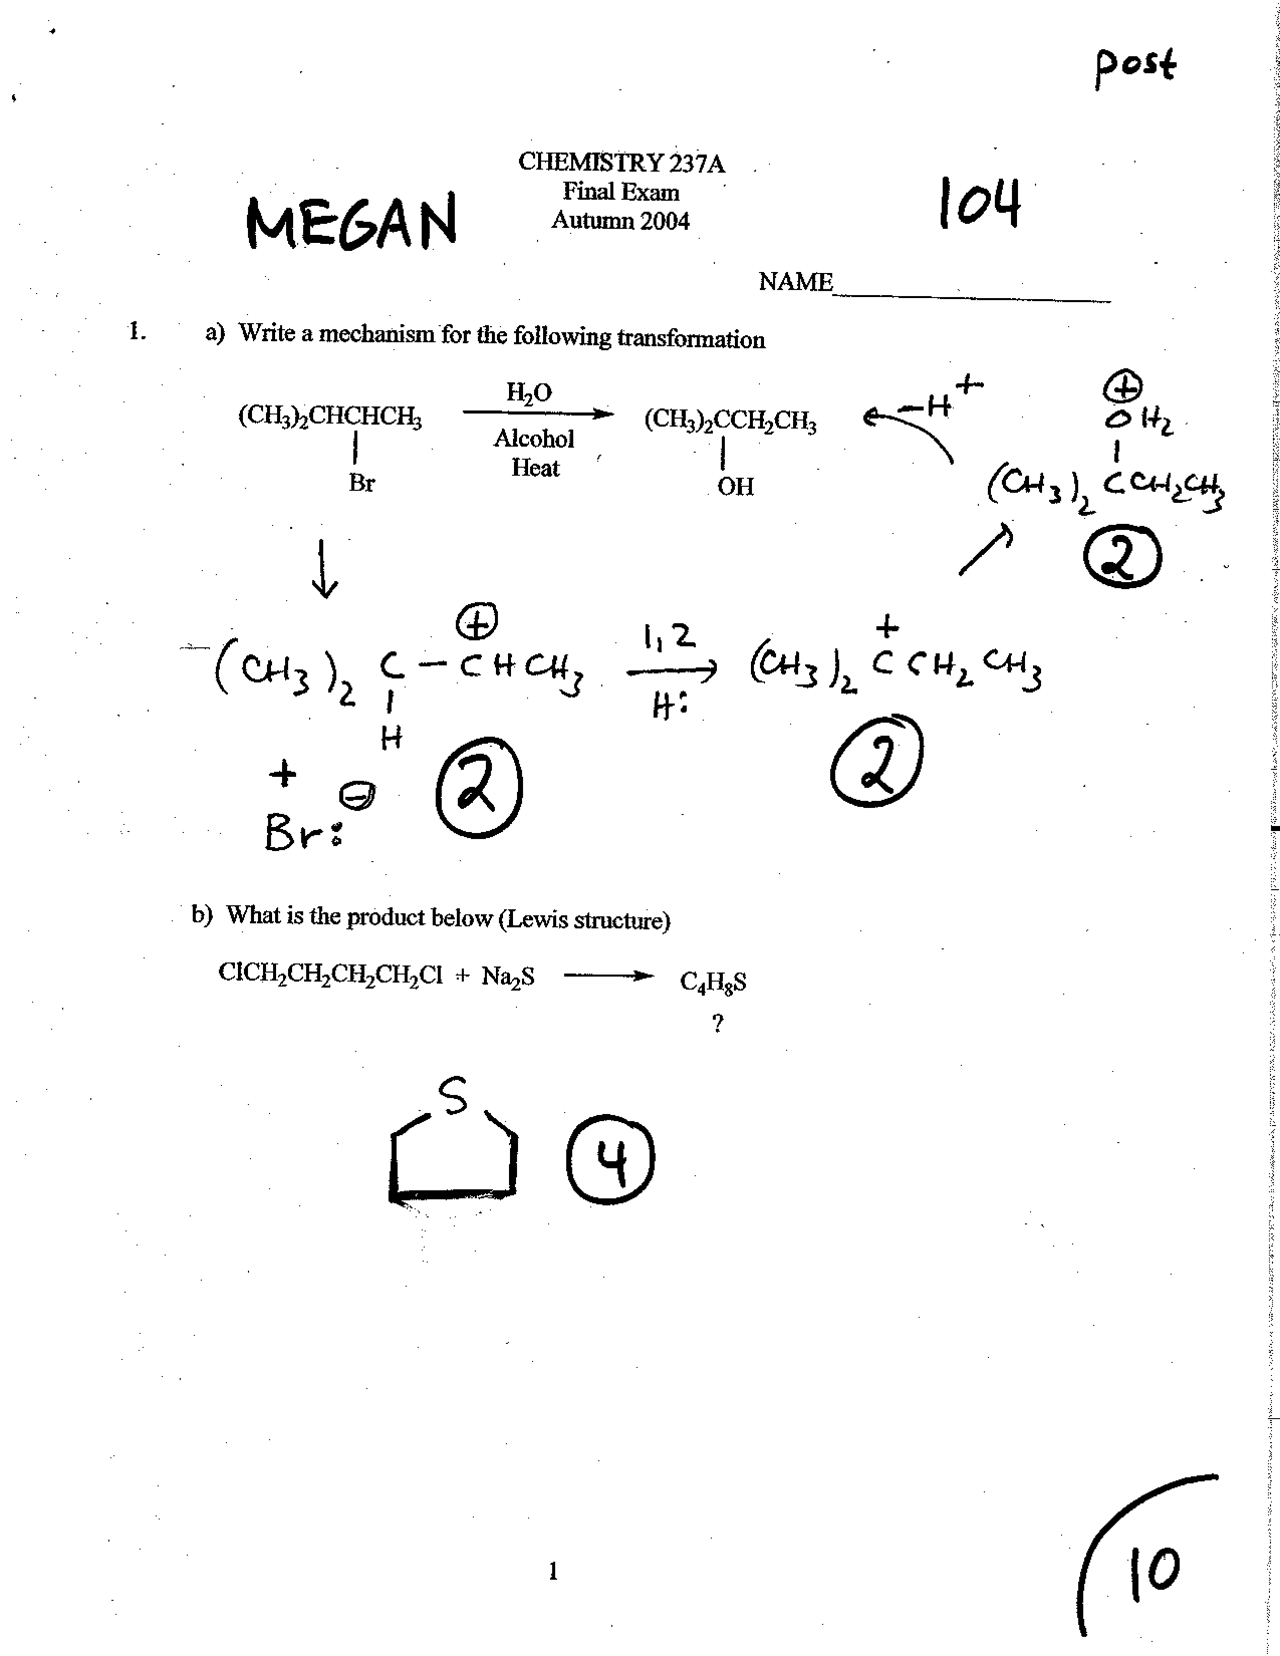 post
CHEMISTRY 237A
Final Exam
Autumn 2004
MEGAN
104
NAME
1. a) Write a mechanism for the following transformation
(CH₃)₂CHCHCH₃
Br
H₂O
Alcohol
Heat
(CH₃)₂CCH₂CH₃
OH
-H⁺
⊕
OH₂
(CH₃)₂CCH₂CH₃
2
⊕
(CH₃)₂C-CHCH₃
H
+
Br: ⊖
2
1,2
H:
+
(CH₃)₂CCH₂CH₃
2
b) What is the product below (Lewis structure)
ClCH₂CH₂CH₂CH₂Cl + Na₂S → C₄H₈S
?
S
4
1
10